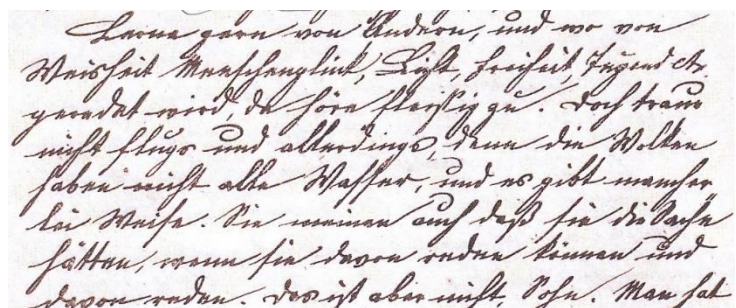 Lerne gern von Andern, und wo von
Weisheit Menschenglück, Licht, Freiheit, Tugend etc.
geredet wird, da höre fleißig zu. Doch traue
nicht flugs und allerdings, denn die Wolken
haben nicht alle Wasser, und es gibt mancher
lei Weise. Sie meinen auch daß sie die Sache
hätten, wenn sie davon reden können und
davon reden. Das ist aber nicht, Sohn. Man hat